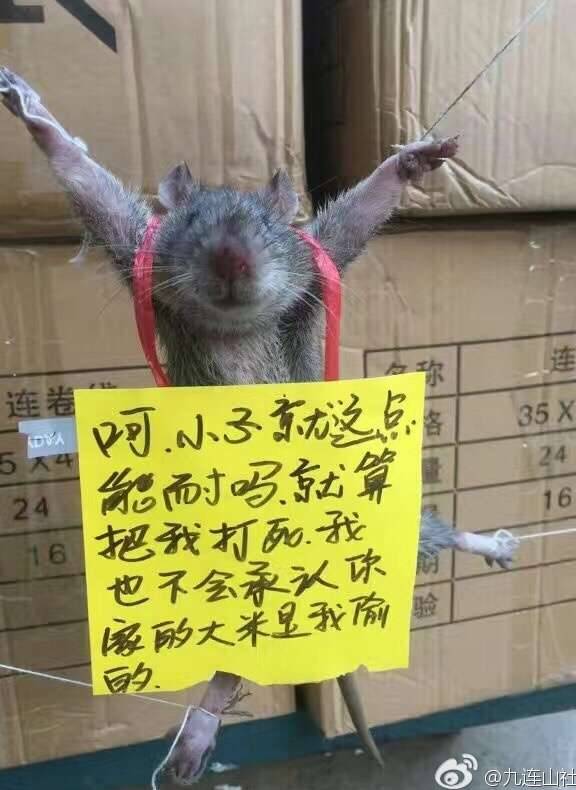 呵.小子就这点
能耐吗.就算
把我打死.我
也不会承认你
家的大米是我偷
的.
连卷袋
5 X 4
24
16
名称
格
量
期
验
35 X
24
16
@九连山社